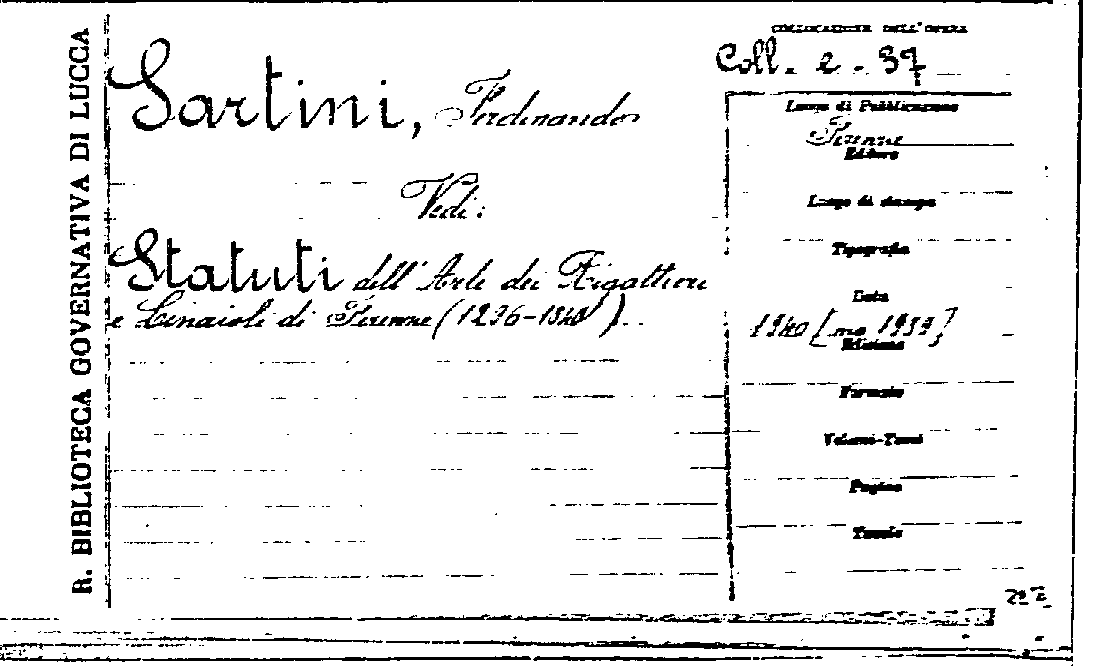 R. BIBLIOTECA GOVERNATIVA DI LUCCA
COLLOCAZIONE DELL'OPERA
Coll. 2 - 37
Sartini, Ferdinando
Vedi:
Statuti dell'Arte dei Rigattieri
e Linaioli di Firenze (1296-1340).
Luogo di Pubblicazione
Firenze
Editore
Luogo di stampa
Tipografia
Data
1940 [ma 1939]
Edizione
Formato
Volumi-Tomi
Pagine
Tavole